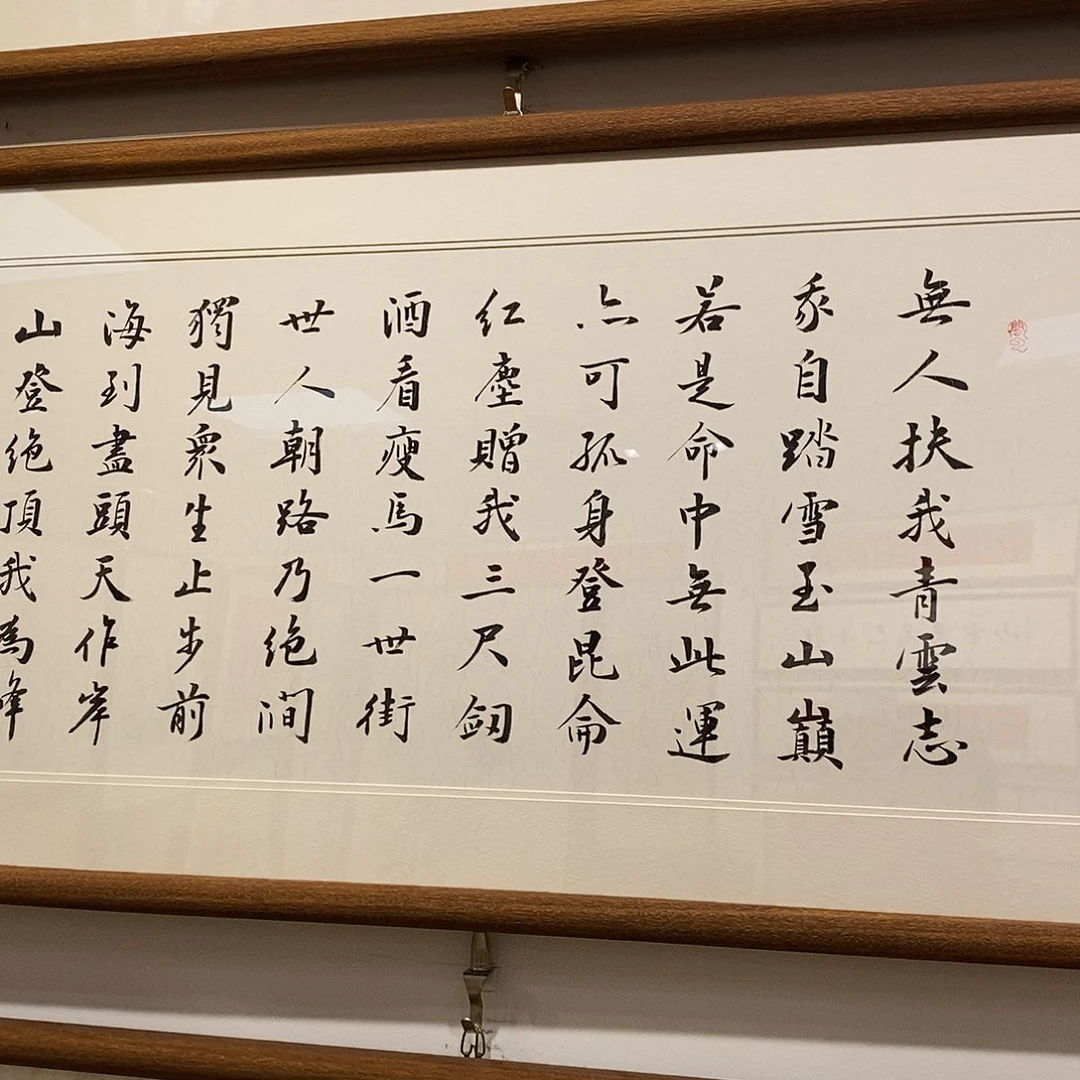 無人扶我青雲志
我自踏雪至山巔
若是命中無此運
亦可孤身登昆侖
红塵贈我三尺釼
酒看瘦馬一世街
世人朝路乃绝澗
獨見衆生止步前
海到盡頭天作岸
山登绝頂我為峰